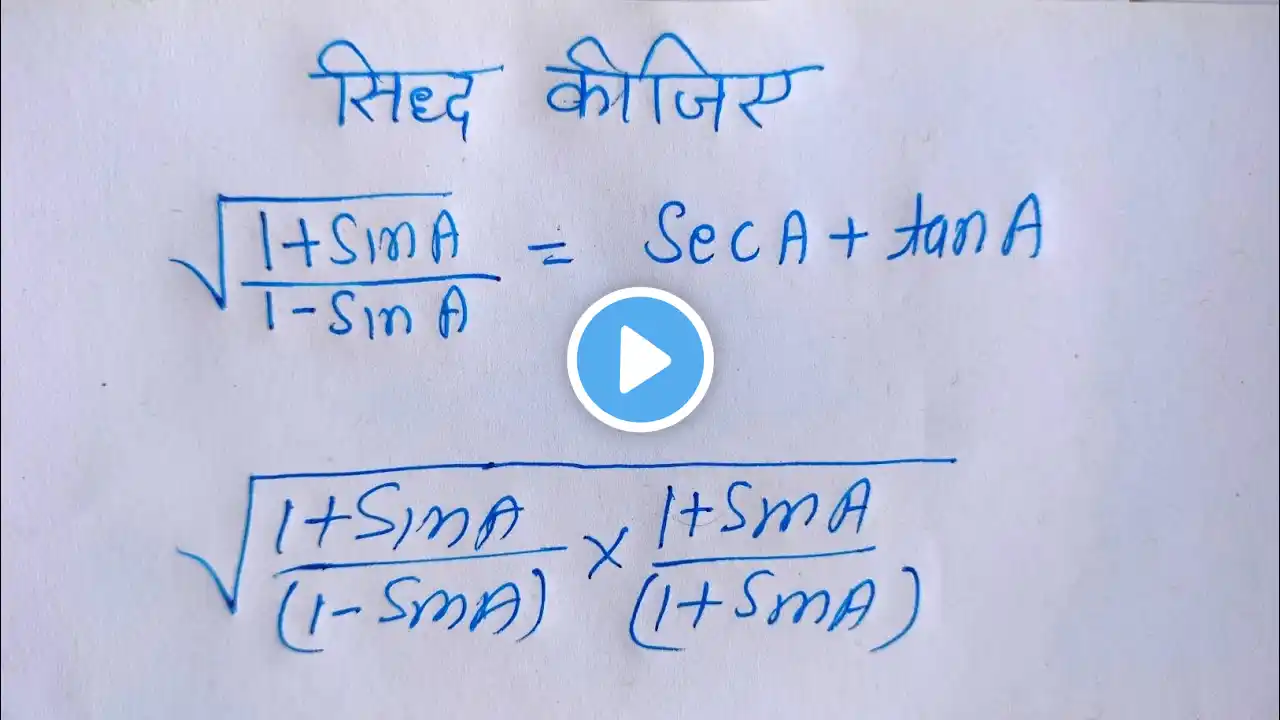 सिध्द कीजिए
√(1+SinA)/(1-SinA) = SecA + tanA
√(1+SinA)/(1-SinA) × (1+SinA)/(1+SinA)